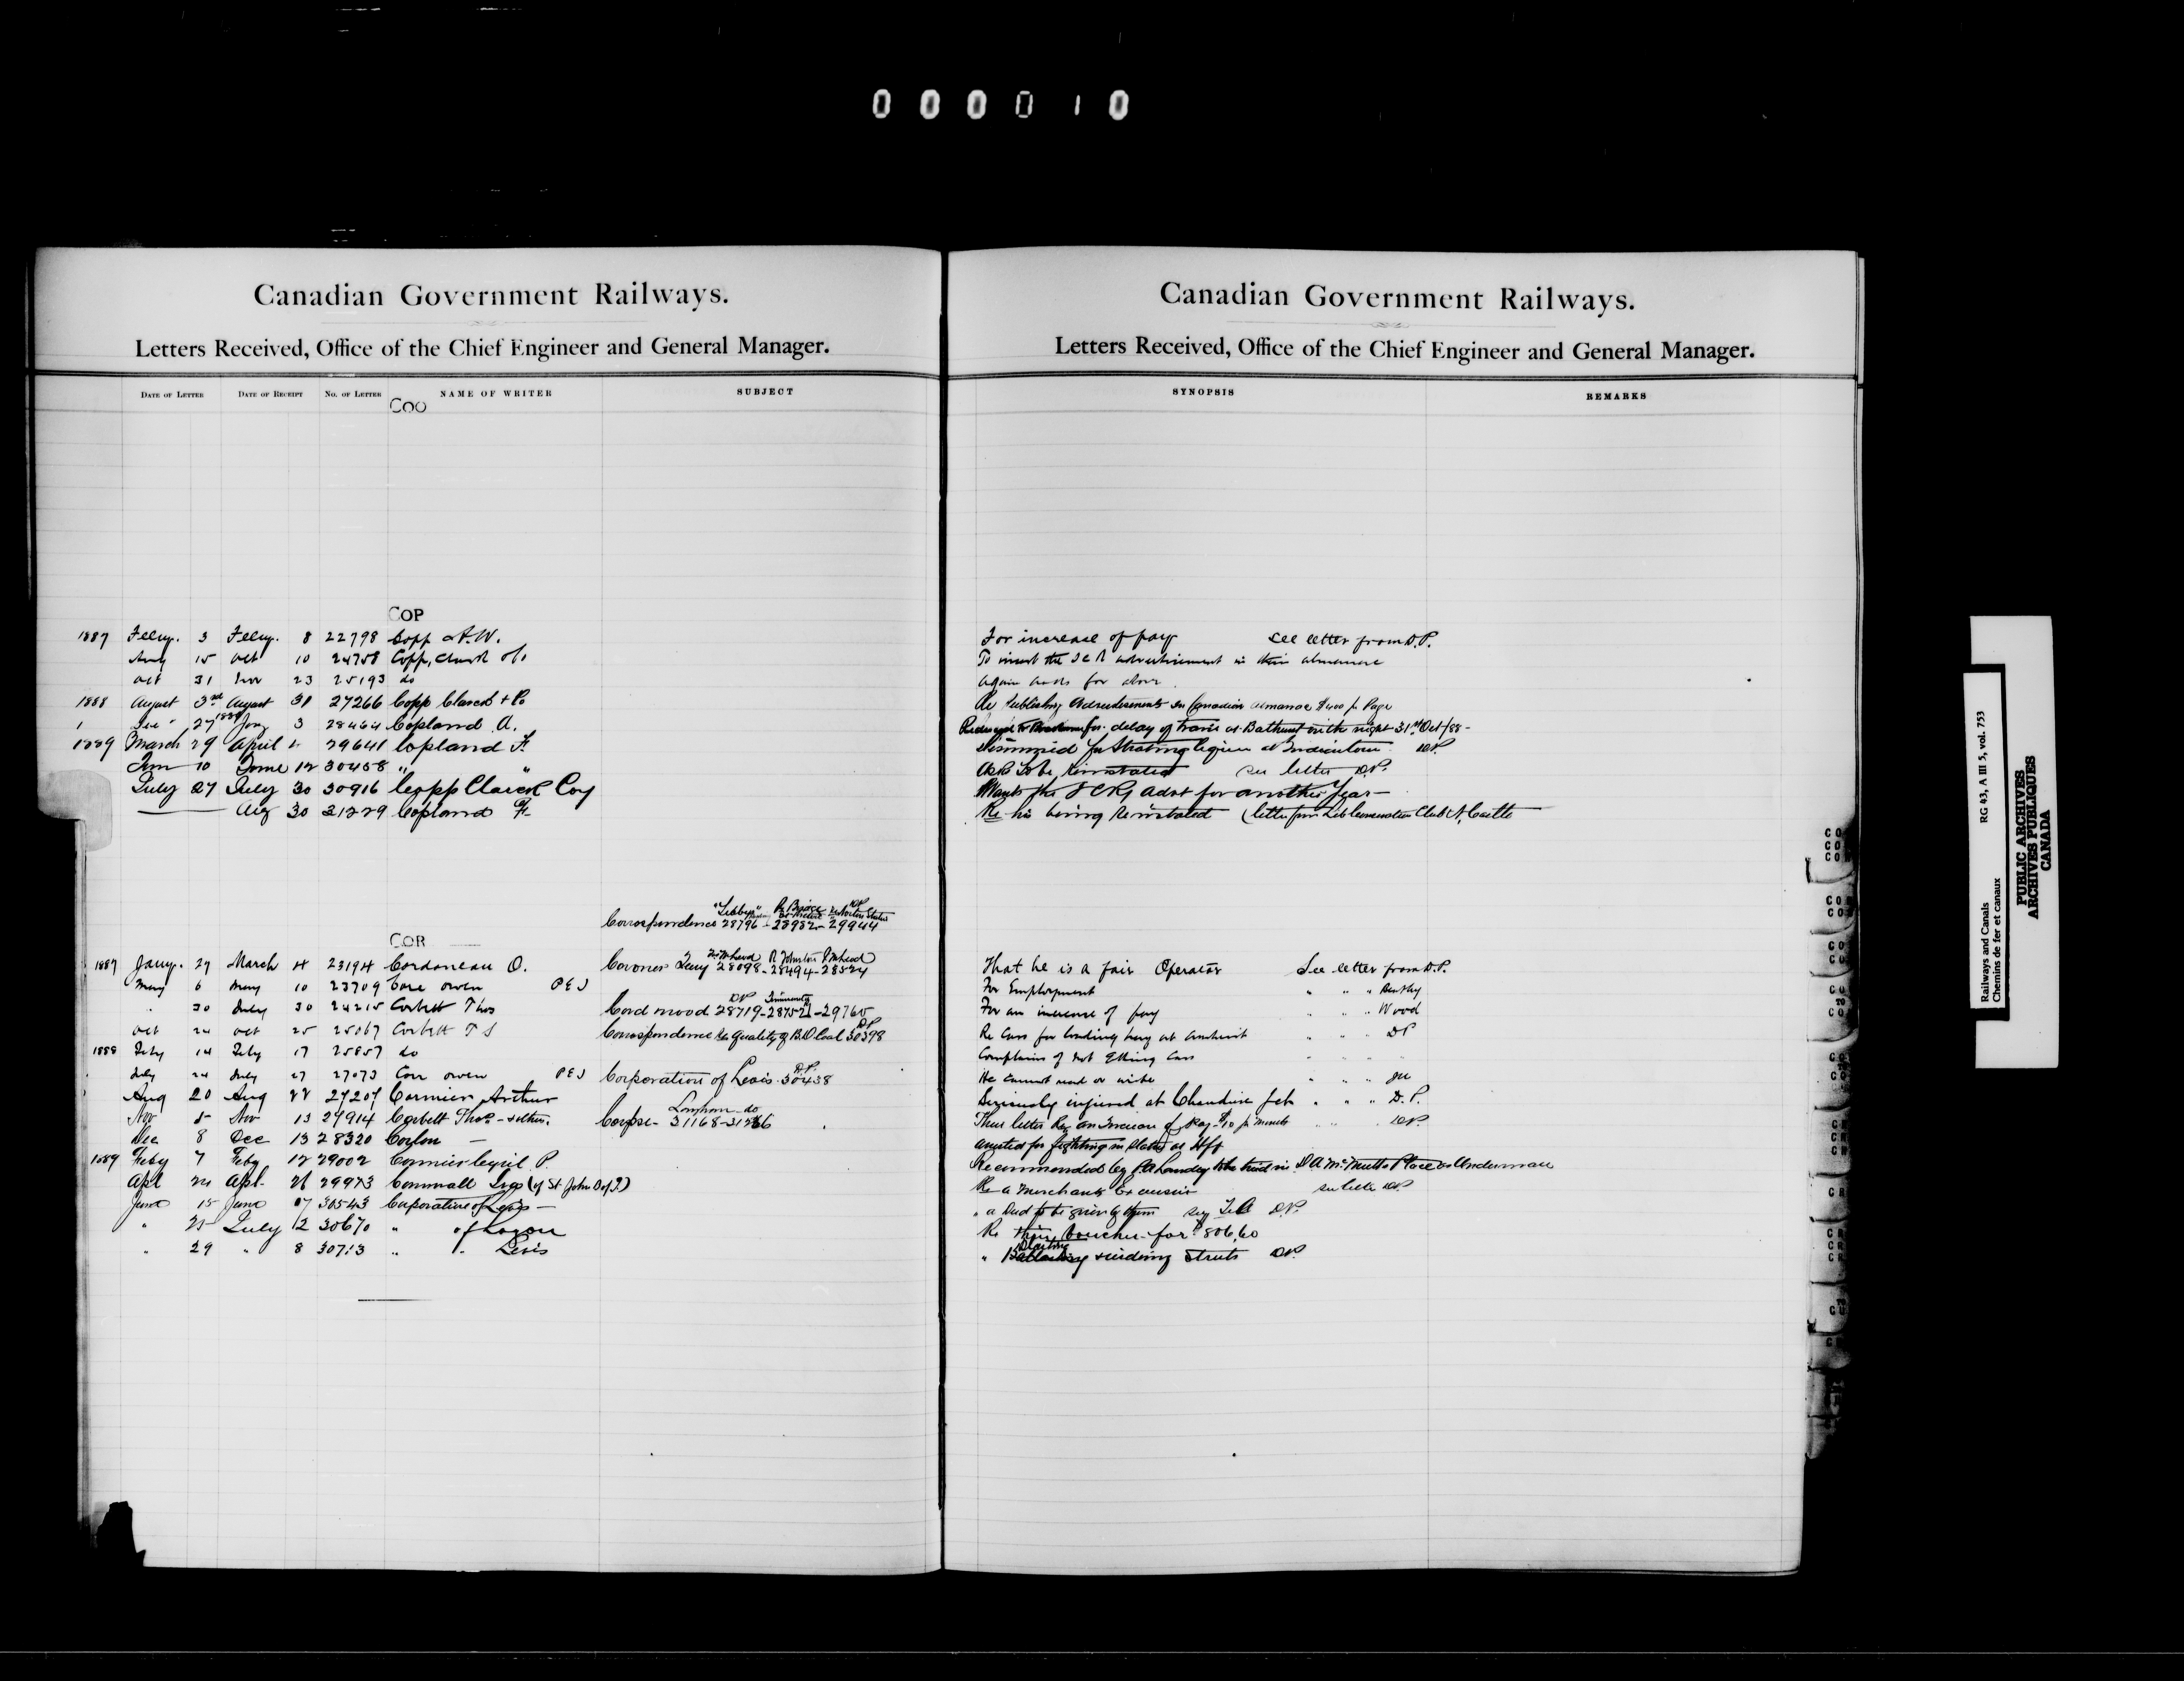 000010
Canadian Government Railways.
Letters Received, Office of the Chief Engineer and General Manager.
DATE OF LETTER DATE OF RECEIPT No. OF LETTER NAME OF WRITER SUBJECT
COO
COP
1887 Feby. 3 Feby. 8 22798 Copp A.W.
Aug 15 Oct 10 24758 Copp, Clark
Oct 31 Nov 23 25193 do
1888 August 3rd August 31 27266 Copp Clark + Co
27 1889 Jany 3 28464 Copland A.
1889 March 29 April 29641 Copland F.
June 10 June 12 30458 " "
July 27 July 30 30916 Copp Clark Coy
Aug 30 31229 Copland F.
"Libbys" Re Bridge DP
Correspondence 28796 - 28982 - 29944
COR
1887 Jany. 27 March 4 23194 Cordoneau O.
Coroner 28098 - 28494 - 28524
May 6 May 10 23709 Core Owen PEI
30 July 30 24215 Corbett Thos
Cord wood 28719 - 28752 - 29765
Oct 24 Oct 25 25067 Corbett T S
Correspondence Re Quality of Coal 30398 DP
1888 Feby 14 Feby 17 25857 do
July 24 July 27 27073 Corr Owen PEI
Corporation of Levis 30438 D.P.
Aug 20 Aug 28 27207 Cormier Arthur
Nov 5 Nov 13 27914 Corbett Thos. + others.
Corpse - 31168 - 31266
Dec 8 Dec 13 28320 Corlon —
1889 Feby 7 Feby 12 29002 Cormier Cyril P.
Apl 24 Apl. 26 29973 Cornwall Ira (of St John B of T)
June 15 June 27 30543 Corporation of Levis —
" 25 July 2 30670 " of Lauzon
" 29 " 8 30713 " " Levis
Canadian Government Railways.
Letters Received, Office of the Chief Engineer and General Manager.
SYNOPSIS REMARKS
For increase of pay See letter from D.P.
To insert the I C R advertisement in their almanac
Again asks for above
Re Publishing Advertisements in Canadian almanac $400 pr Page
for delay of train at Bathurst on the night 31st Oct/88 -
Dismissed for liquor at Indiantown DP.
Asks to be reinstated see letter D.P.
Wants the I C Ry Advt for another Year —
Re his being Reinstated (letter from Lib Conservative Club N. Castle
That he is a fair Operator See letter from D.P.
For Employment " " " Bentley
For an increase of pay " " " Wood
Re Cars for loading hay at Amherst " " " DP
Complains of not getting cars " " " "
He cannot read or write " " "
Seriously injured at Chaudiere Jct " " " D.P.
Their letter Re an Increase of pay $10 pr month " " " DP.
Arrested for fighting in Station at Hfx
Recommended by P.A. Landry to be tried in D A McNutts Place as Underman
Re a Merchants Excursion see letter DP.
" a Deed to be given by them D.P.
Re their Voucher for $806.60
" + widening Streets DP.
Railways and Canals RG 43, A III 5, vol. 753
Chemins de fer et canaux
PUBLIC ARCHIVES
ARCHIVES PUBLIQUES
CANADA